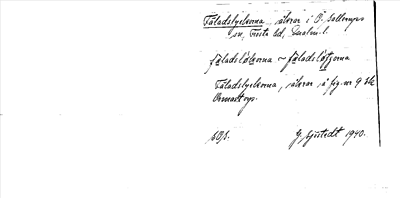 Fäladslyckorna, åkrar i Ö. Sallerups
sn, Frosta hd, Malm. l.
fäladslökorna ~ fäladslöfjorna
Fäladslyckorna, åkrar, å fig. nr 9
Ormastorps.
G. Sjöstedt 1940.